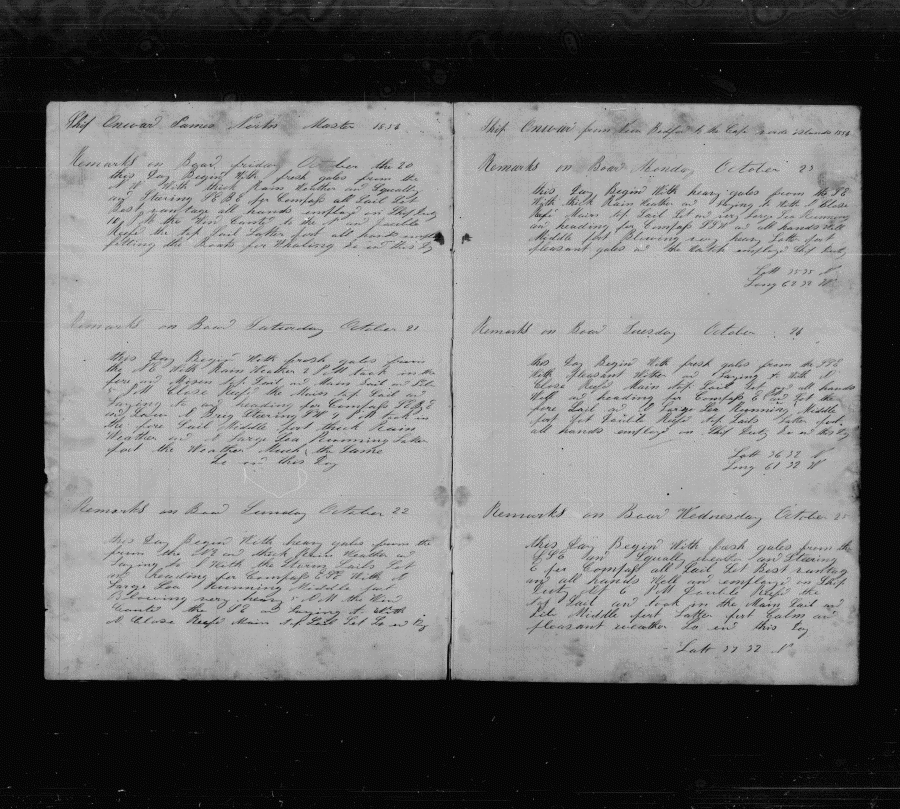 Ship Onward James Norton Master 1854
Remarks on Board friday October the 20
this Day Begins With fresh gales from the
With thick Rain Weather and Squally
and Staring SEBE for Compass all Sail Set
Best vantage all hands employd on Ship Duty
the Wind and Double
Reeft the top Sail Latter part all hands employd
fitting the Boats for Whaling So ends this Day
Remarks on Board Saturday October 21
this Day Begins With fresh gales from
the NE With Rain Weather 2 PM took in the
fore and Mizen top Sail and Main Sail and
PM Close Reeft the Main top Sail and
laying to heading for Compass
and Large A Brig Staring SW 4 PM took in
the fore Sail Middle part thick Rain
Weather and A large Sea Running Latter
part the Weather Much the Same
So ends this Day
Remarks on Board Sunday October 22
this Day Begins With heavy gales from the
from the and thick Rain Weather and
laying to With the Storm Sails Set
and heading for Compass With A
large Sea Running Middle part
Blowing very heavy the Wind
the SE and laying to With
A Close Reeft Main top Sail Set So ends Day
Ship Onward from New Bedford to the Cape verde islands 1854
Remarks on Board Monday October 23
this Day Begins With heavy gales from the SE
With thick Rain Weather and laying to With A Close
Reeft Main top Sail Set and very Large Sea Running
and heading for Compass and all hands Well
Middle part Blowing very heavy Latter part
pleasant gales and the Watch employd Ship Duty
Latt 35 35 N
Long 62 32 W
Remarks on Board Tuesday October 24
this Day Begins With fresh gales from the
With pleasant Wether and laying to With A
Close Reeft Main top Sail Set and all hands
Well and heading for Compass Set the
fore Sail and A Large Sea Running Middle
part Set Double Reeft top Sails Latter part
all hands employd on Ship Duty So ends this Day
Latt 36 32 N
Long 61 32 W
Remarks on Board Wednesday October 25
this Day Begins With fresh gales from the
and Squally weather and Staring
E for Compass all Sail Set Best vantag
and all hands Well and employd on Ship
Duty At 6 PM Double Reeft the
top Sail and took in the Main Sail and
Middle part Latter part Calm and
pleasant weather So ends this Day
Latt 37 32 N